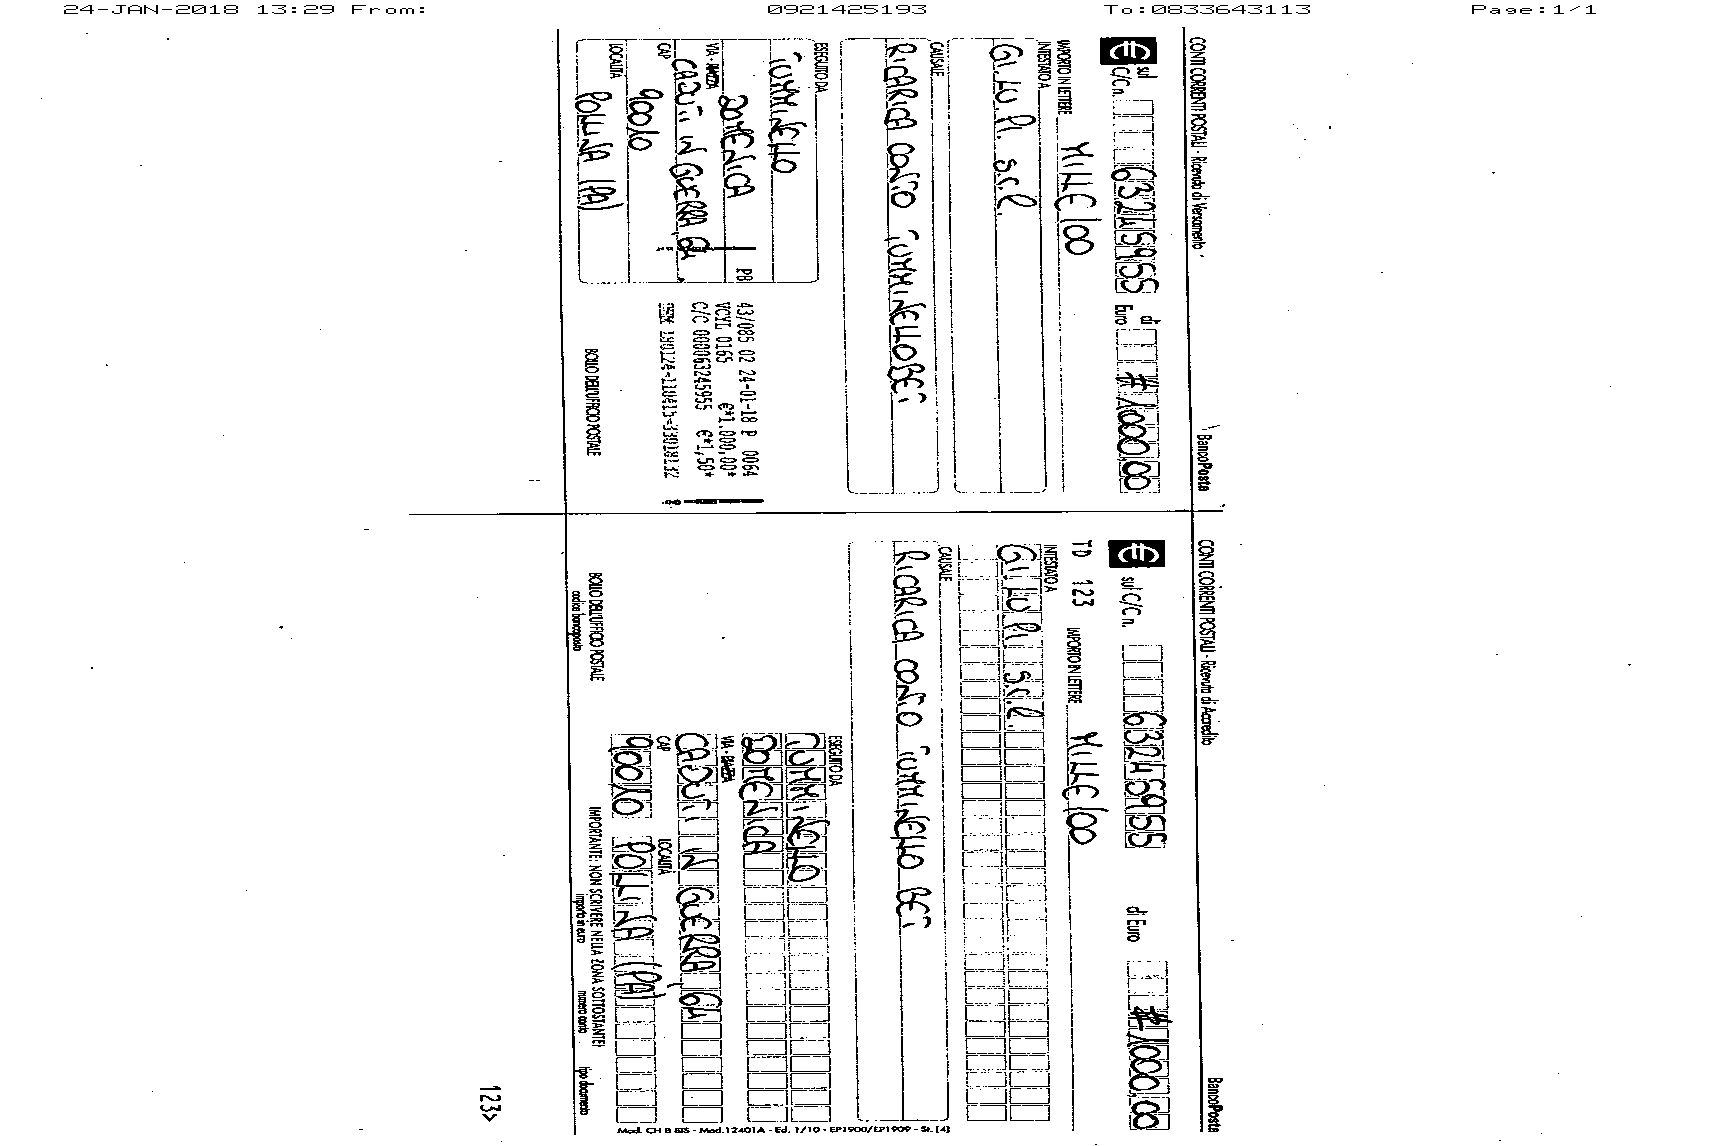 24-JAN-2018 13:29 From: 0921425193 To:0833643113 Page:1/1
CONTI CORRENTI POSTALI - Ricevuta di Versamento
BancoPosta
€ sul C/C n. 63245955 di Euro # 1000,00
IMPORTO IN LETTERE MILLE/00
INTESTATO A
GI.LU.PI. S.C.R.
CAUSALE
RICARICA CONTO TUMMINELLOBET
ESEGUITO DA
TUMMINELLO
DOMENICA
VIA - PIAZZA
CADUTI IN GUERRA, 64
CAP
90010
LOCALITÀ
POLLINA (PA)
PB
43/085 02 24-01-18 P 0064
VCYL 0165 €*1.000,00*
C/C 000063245955 €*1,50*
BOLLO DELL'UFFICIO POSTALE
CONTI CORRENTI POSTALI - Ricevuta di Accredito
BancoPosta
€ sul C/C n. 63245955 di Euro # 1000,00
TD 123 IMPORTO IN LETTERE MILLE/00
INTESTATO A
GI.LU.PI. S.C.R.
CAUSALE
RICARICA CONTO TUMMINELLO BET
ESEGUITO DA
TUMMINELLO
DOMENICA
VIA - PIAZZA
CADUTI IN GUERRA, 64
CAP LOCALITÀ
90010 POLLINA (PA)
BOLLO DELL'UFFICIO POSTALE
codice bancoposta
IMPORTANTE: NON SCRIVERE NELLA ZONA SOTTOSTANTE!
importo in euro numero conto tipo documento
123>
Mod. CH 8 BIS - Mod.12401A - Ed. 1/10 - EP1900/EP1909 - St. [4]